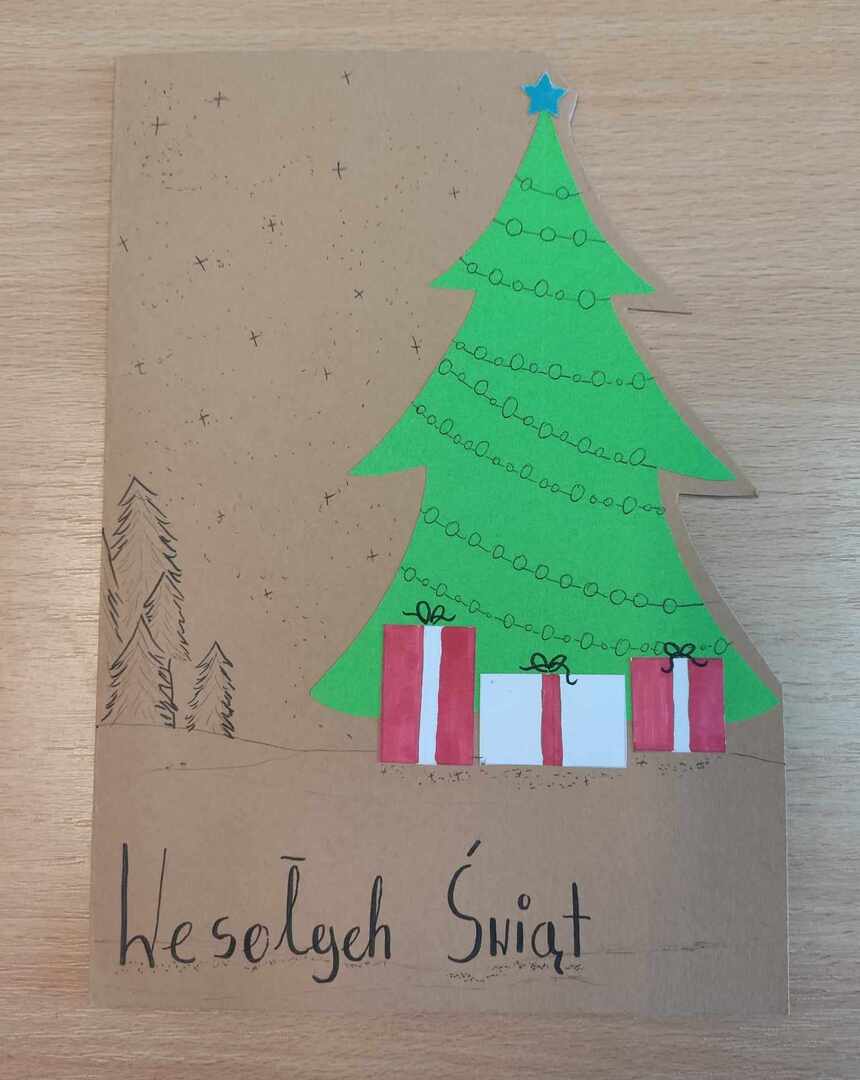 Wesołych Świąt